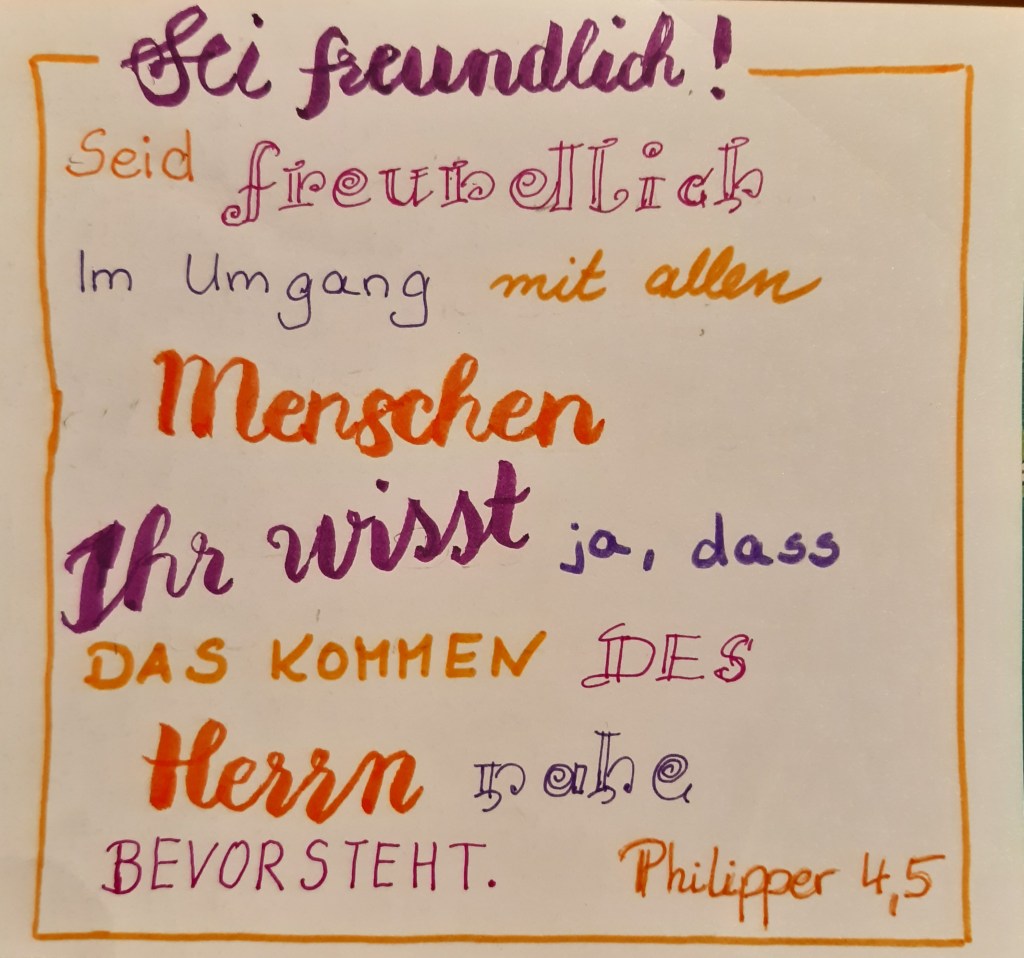 Sei freundlich!
Seid freundlich
Im Umgang mit allen
Menschen
Ihr wisst ja, dass
DAS KOMMEN DES
Herrn nahe
BEVORSTEHT.
Philipper 4,5